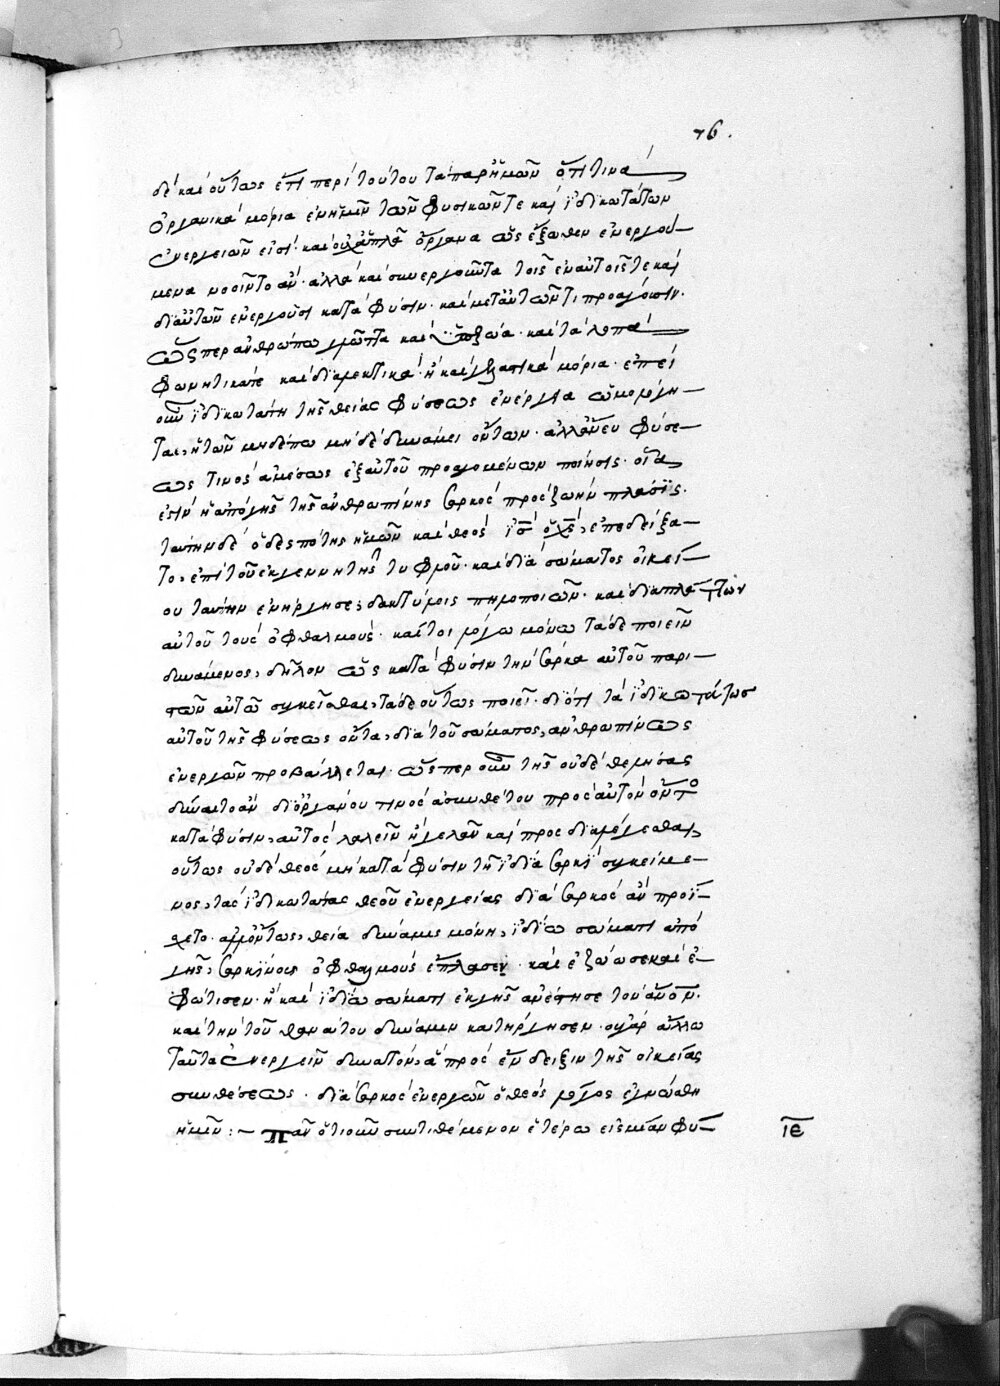 76.
δὲ καὶ οὕτως ἔτι περὶ τούτου τὰ παρ' ἡμῶν ὅτι τινὰ
ὀργανικὰ μόρια ἐν ἡμῖν τῶν φυσικῶν τε καὶ ἰδικωτάτων
ἐνεργειῶν εἰσί· καὶ οὐχ ἁπλᾶ ὄργανα ὡς ἔξωθεν ἐνεργού-
μενα νοοῖντο ἄν· ἀλλὰ καὶ συνεργοῦντα τοῖς ἐν αὐτοῖς τε καὶ
δι' αὐτῶν ἐνεργοῦσι κατὰ φύσιν· καὶ μετ' αὐτῶν τι προάγουσιν·
ὥσπερ ἀνθρώπω γλῶττα καὶ ζῶα· καὶ τὰ λοιπὰ
φωνητικά τε καὶ διαλεκτικὰ· ἢ καὶ μόρια· ἐπεὶ
οὖν ἰδικωτάτη τῆς θείας φύσεως ἐνέργεια ὡμολόγη-
ται, ἡ τῶν μηδέπω μηδὲ δυνάμει ὄντων· ἀλλ' ἄνευ φύσε-
ως τινὸς ἀμέσως ἐξ αὐτοῦ προαγομένων ποίησις· οἵα
ἐστὶν ἡ ἀπὸ γῆς τῆς ἀνθρωπίνης σαρκὸς πρὸς ζωὴν πλάσις·
ταύτην δὲ ὁ δεσπότης ἡμῶν καὶ θεὸς ις ὁ χς, ἐπεδείξα-
το, ἐπὶ τοῦ ἐκ γεννητῆς τυφλοῦ· καὶ διὰ σώματος οἰκεί-
ου ταύτην ἐνήργησε, δακτύλοις πηλοποιῶν· καὶ διαπλάττων
αὐτοῦ τοὺς ὀφθαλμούς· καίτοι λόγω μόνω τάδε ποιεῖν
δυνάμενος, δῆλον ὡς κατὰ φύσιν τὴν σάρκα αὐτοῦ παρι-
στῶν αὐτῶ συγκεῖσθαι, τάδε οὕτως ποιεῖ· διότι τὰ ἰδικωτάτως
αὐτοῦ τῆς φύσεως ὄντα, διὰ τοῦ σώματος, ἀνθρωπίνως
ἐνεργῶν προβάλλεται· ὥσπερ οὖν τῆς οὐδὲ θεμήσας
δύναιτο ἂν δι' ὀργάνου τινὸς ἀσυνθέτου πρὸς αὐτὸν ὄντο
κατὰ φύσιν, αὐτὸς λαλεῖν ἢ γελᾶν καὶ πρὸς διαλέγεσθαι,
οὕτως οὐδὲ θεὸς μὴ κατὰ φύσιν τῆ ἰδία σαρκὶ συγκείμε-
νος, τὰς ἰδικωτάτας θεοῦ ἐνεργείας διὰ σαρκὸς ἂν προϊ-
χετο· θεία δυνάμει μόνη, ἰδίω σώματι ἀπὸ
γῆς, σαρκίνους ὀφθαλμοὺς ἔπλασεν· καὶ ἐζώωσε καὶ ἐ-
φώτισεν· ἢ καὶ ἰδίω σώματι ἐκ γῆς ἀνέστησε τὸν ἄνον·
καὶ τὴν τοῦ θανάτου δύναμιν κατήργησεν· οὐ γὰρ ἄλλω
ταῦτα ἐνεργεῖν δυνατόν, ἃ πρὸς ἔνδειξιν τῆς οἰκείας
συνθέσεως· διὰ σαρκὸς ἐνεργῶν ὁ θεὸς λόγος ἐγνώσθη
ἡμῖν :~ Πᾶν ὁτιοῦν συντιθέμενον ἑτέρω εἰς μίαν φύ-
ιε